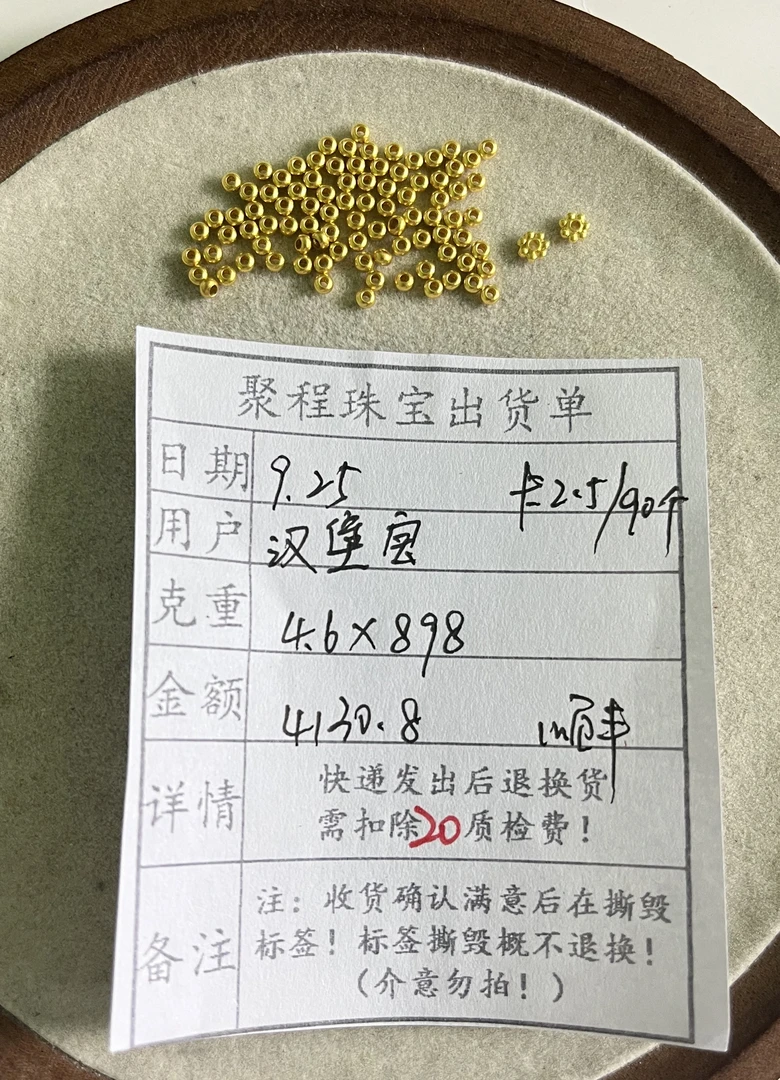 聚程珠宝出货单
日期 9.25 卡2.5/90个
用户 汉堡宝
克重 4.6×898
金额 4130.8 顺丰
详情 快递发出后退换货
需扣除20质检费！
备注 注：收货确认满意后在撕毁
标签！标签撕毁概不退换！
（介意勿拍！）